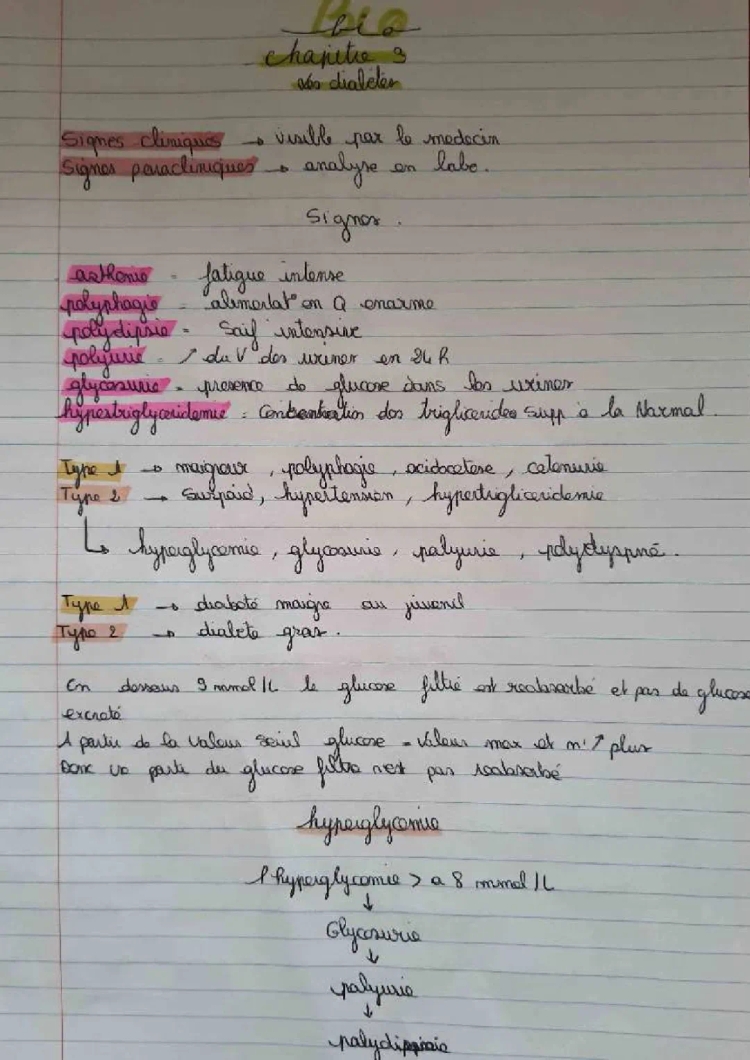 Bio
chapitre 3
les diabètes
Signes cliniques → visible par le medecin
Signes paracliniques → analyse en labo.
Signes.
asthenie = fatigue intense
polyphagie = alimentat° en Q enorme
polydipsie = Soif intensive
polyurie = ↗ du V des urines en 24 h
glycosurie = presence de glucose dans les urines
hypertriglyceridemie = Concentration des trigliceridos supp à la Normal.
Type 1 → maigreur, polyphagie, acidocetose, cetonurie
Type 2 → Surpoid, hypertension, hypertrigliceridemie
↳ hyperglycemie, glycosurie, polyurie, polydyspné.
Type 1 → diabete maigre ou juvenil
Type 2 → diabete gras.
En dessous 9 mmol/L le glucose filtré est reabsorbé et pas de glucose
excreté
A partir de la valeur seuil glucose = Valeur max et n'↗ plus
Donc une partie du glucose filtre n'est pas reabsorbé
hyperglycemie
l'hyperglycemie > a 8 mmol/L
↓
Glycosurie
↓
polyurie
↓
polydipsie